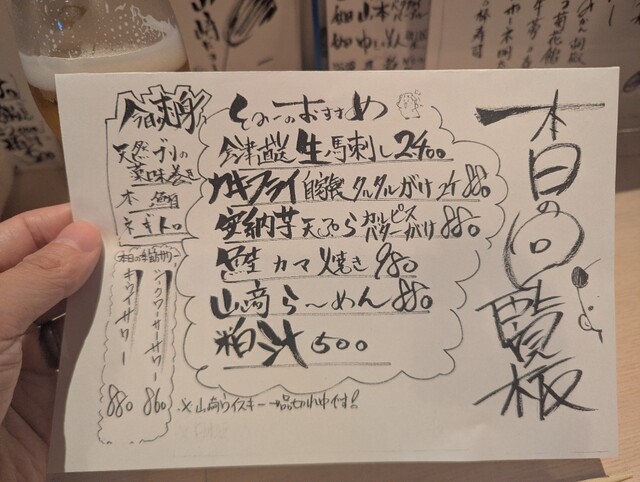 本日の回覧板
その一のおすすめ
会津直送 生馬刺し 2400
カキフライ 自家製タルタルがけ 2ケ 880
安納芋天ぷら カルピスバターがけ 880
鮭カマ焼き 980
山崎ら〜めん 880
粕汁 500
※山崎ウイスキー一時品切れ中です!
今日のお刺身
天然ブリの
薬味巻き
本鮪
ネギトロ
本日の季節サワー
シークワーサーサワー 860
キウイサワー 880